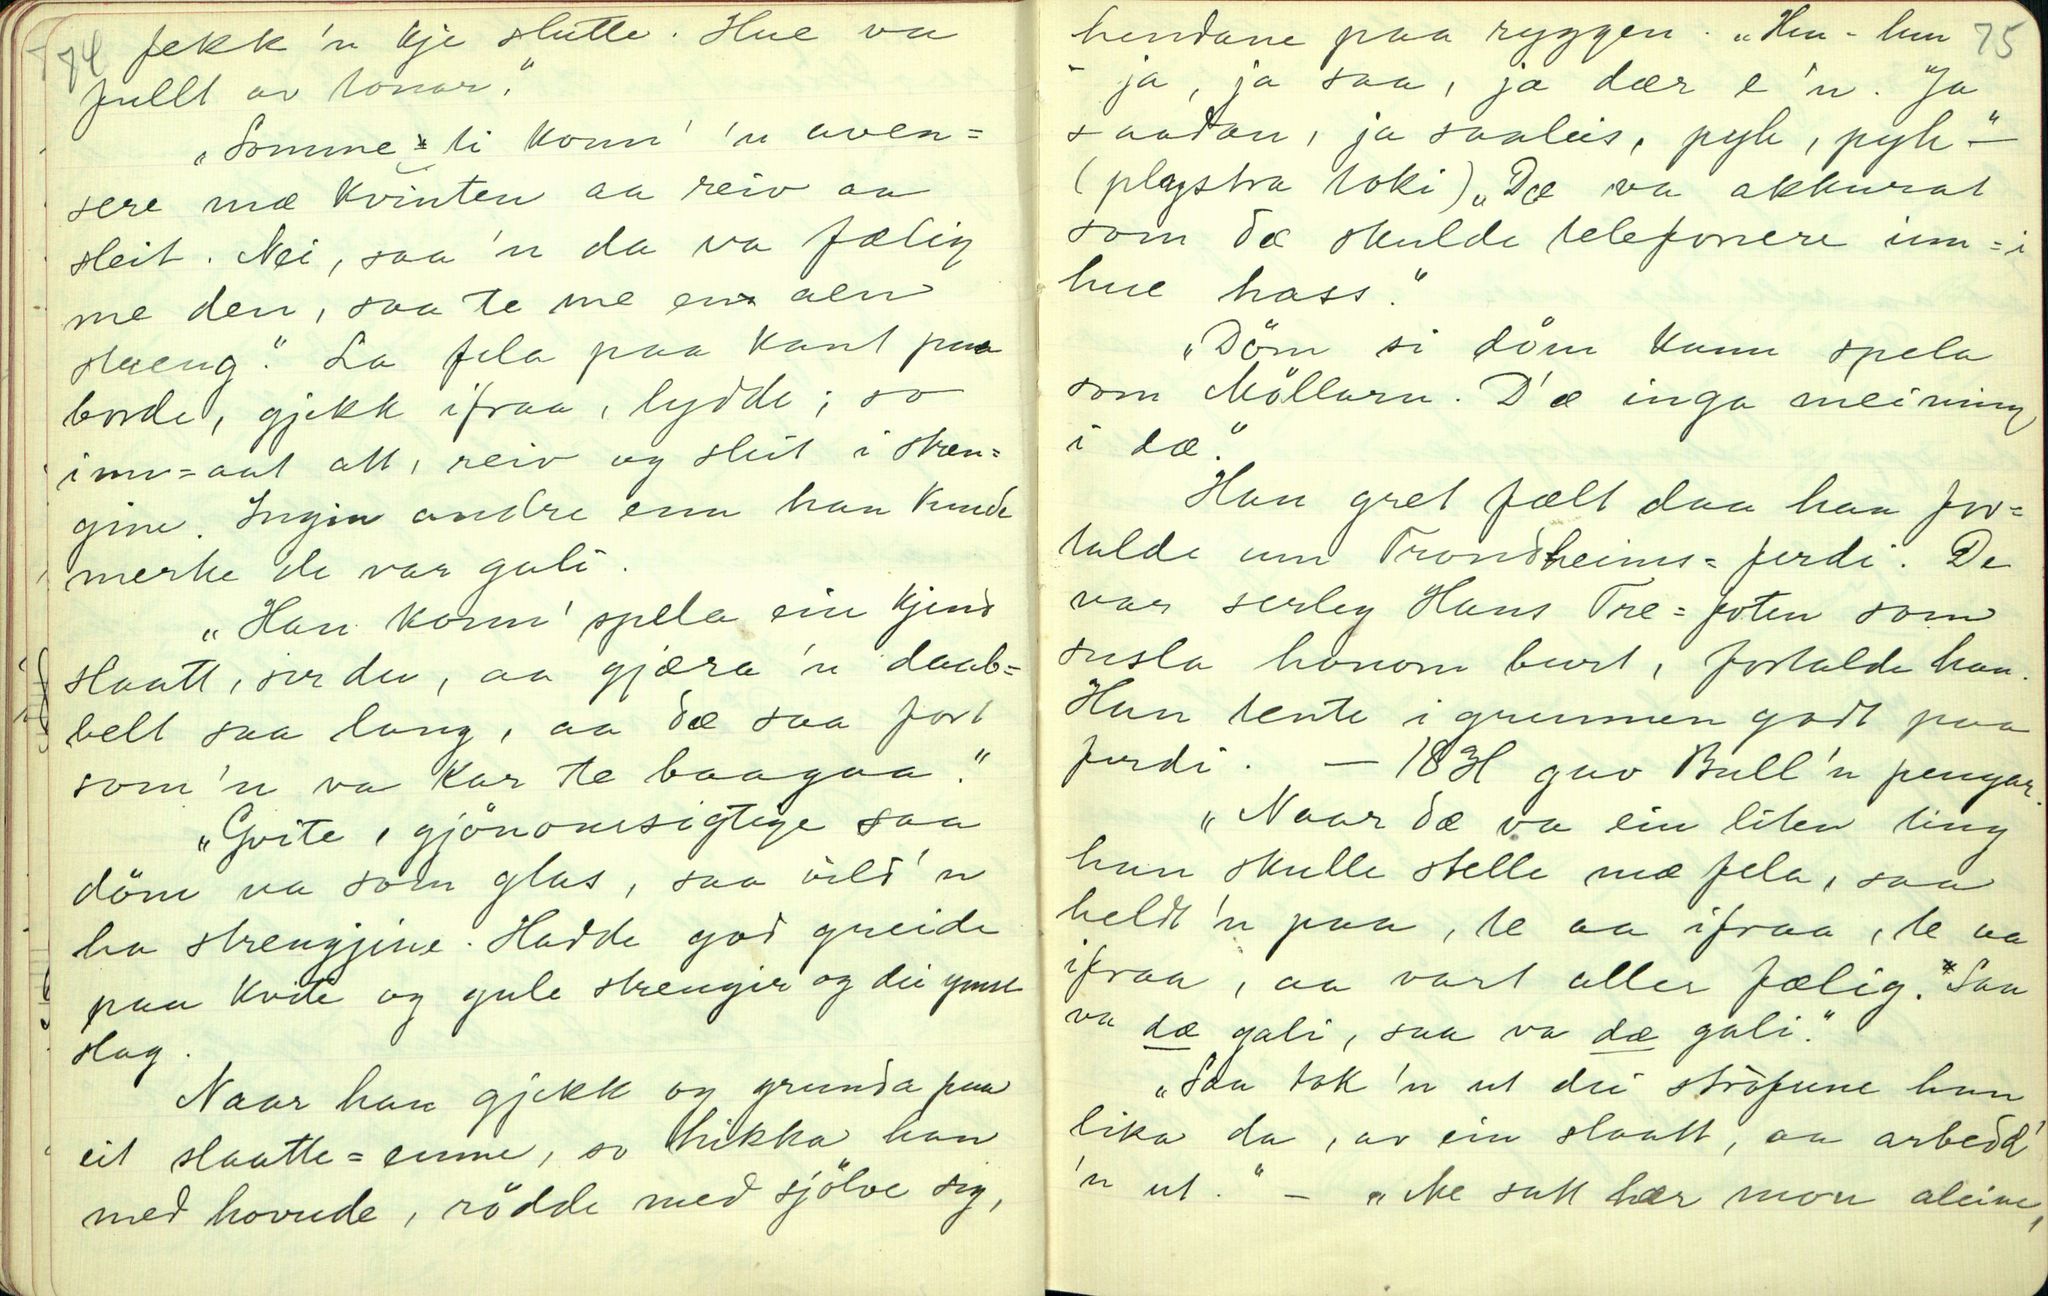 74
fekk 'n kje slutte. Hue va
fullt av tonar."
"Somme=ti konn' 'n aven=
sere mæ kvinten aa reiv aa
sleit. Nei, saa 'n da va fælig
me den, saa te me en aen
stræng." La fela paa kant paa
borde, gjekk ifraa, lydde; so
inn=aat att, reiv og sleit i stræn=
gine. Ingin andre enn han kunde
merke de var gali.
"Han konn' spela ein kjend
slaatt, ser du, aa gjæra 'n daab=
belt saa lang, aa dæ saa fort
som 'n va kar te baagaa."
"Gvite, gjönomsigtige saa
döm va som glas, saa vild 'n
ha strengjine. Hadde god greide
paa kvite og gule strengir og dei ymse
slag.
Naar han gjekk og grunda paa
eit slaatte=emne, so hikka han
med hovude, rödde med sjölve sig,
75
hendane paa ryggen. "Hm - hm
- ja, ja saa, ja dær e 'n. Ja
saadan, ja saaleis, pyh, pyh" -
(plystra toki) "Dæ va akkurat
som dæ skulde telefonere inn=i
hue hass."
"Döm si döm kann spela
som Möllarn. D'æ inga meining
i dæ."
Han gret fælt daa han for=
talde um Trondheims=ferdi. De
var serleg Hans Tre=foten som
susla honom burt, fortalde han.
Han tente i grunnen godt paa
ferdi. - 1831 gav Bull'n pengar.
"Naar dæ va ein liten ting
han skulle stelle mæ fela, saa
heldt 'n paa, te aa ifraa, te aa
ifraa, aa vart aller fælig. Saa
va dæ gali, saa va dæ gali."
"Saa tok 'n ut dei ströfune han
lika da, av ein slaatt, aa arbedd'
'n ut." - "Me satt hær mon aleine,